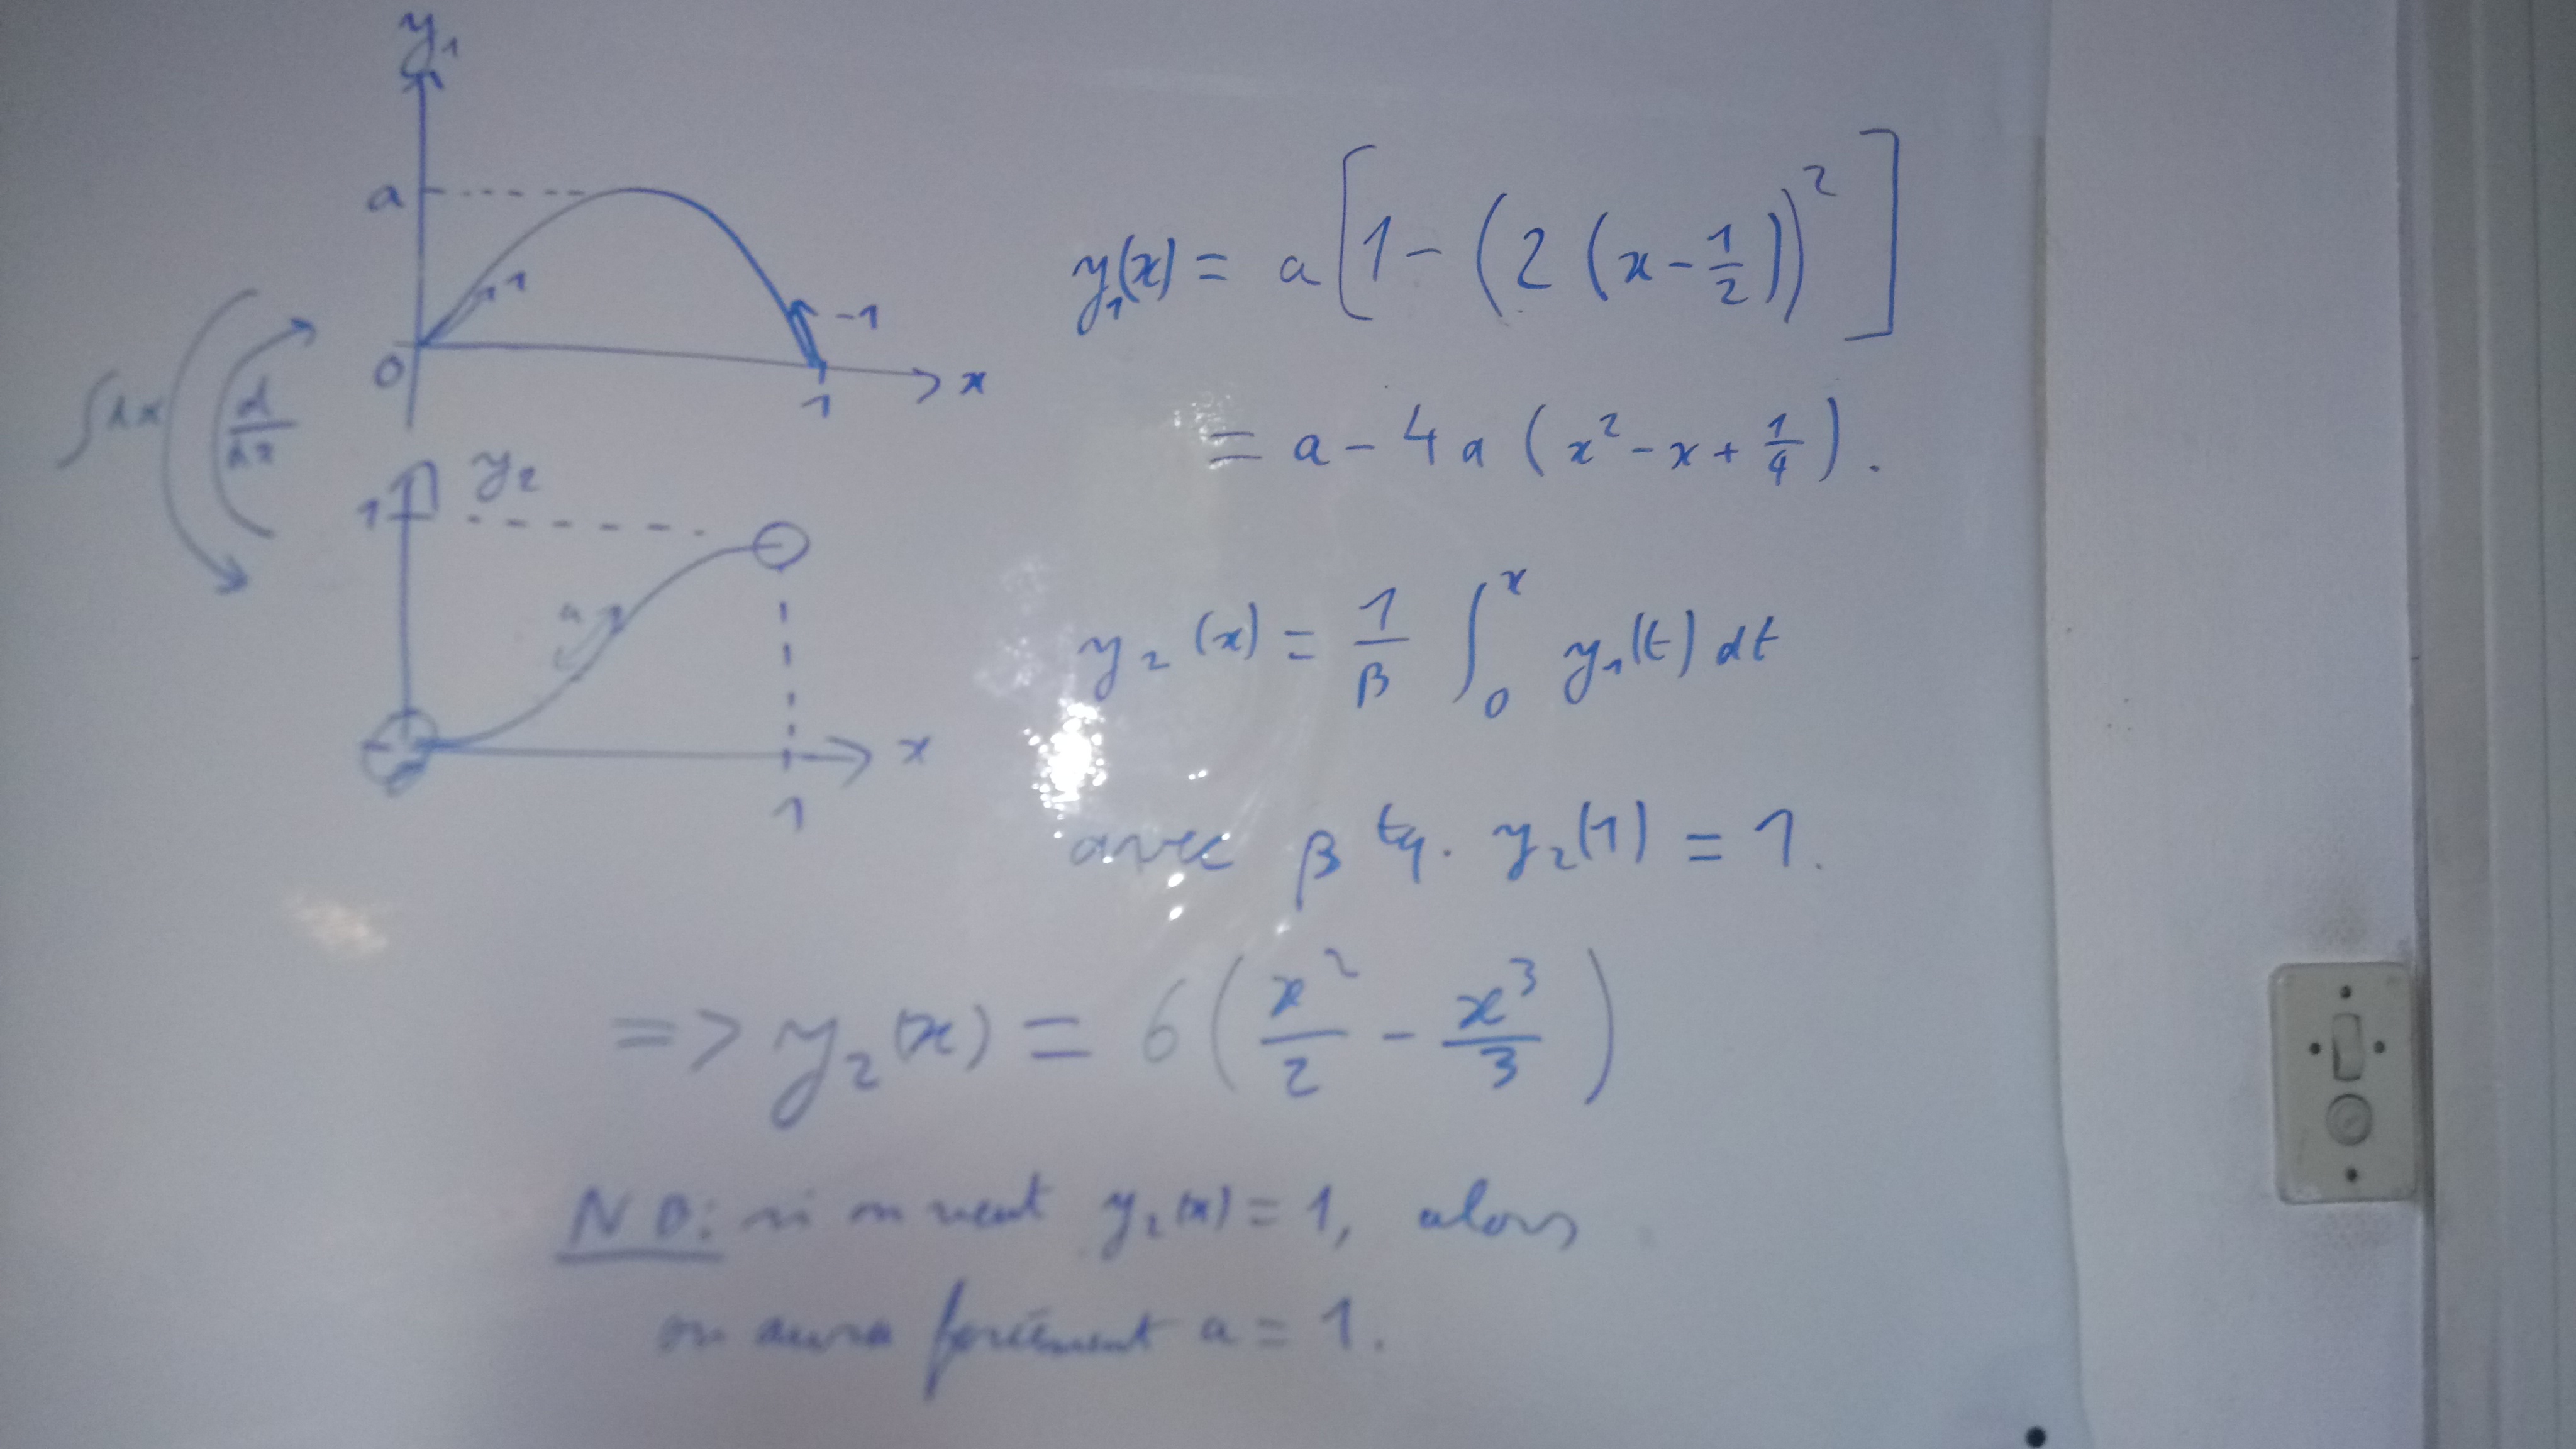 y₁
a
1
-1
0
1
x
∫dx
d/dx
y₂
1
a
x
1
y₁(x) = a[1 - (2(x - 1/2))²]
= a - 4a(x² - x + 1/4).
y₂(x) = 1/β ∫₀ˣ y₁(t) dt
avec β tq. y₂(1) = 1.
=> y₂(x) = 6(x²/2 - x³/3)
NB: si on veut y₂(x) = 1, alors
on aura forcément a = 1.